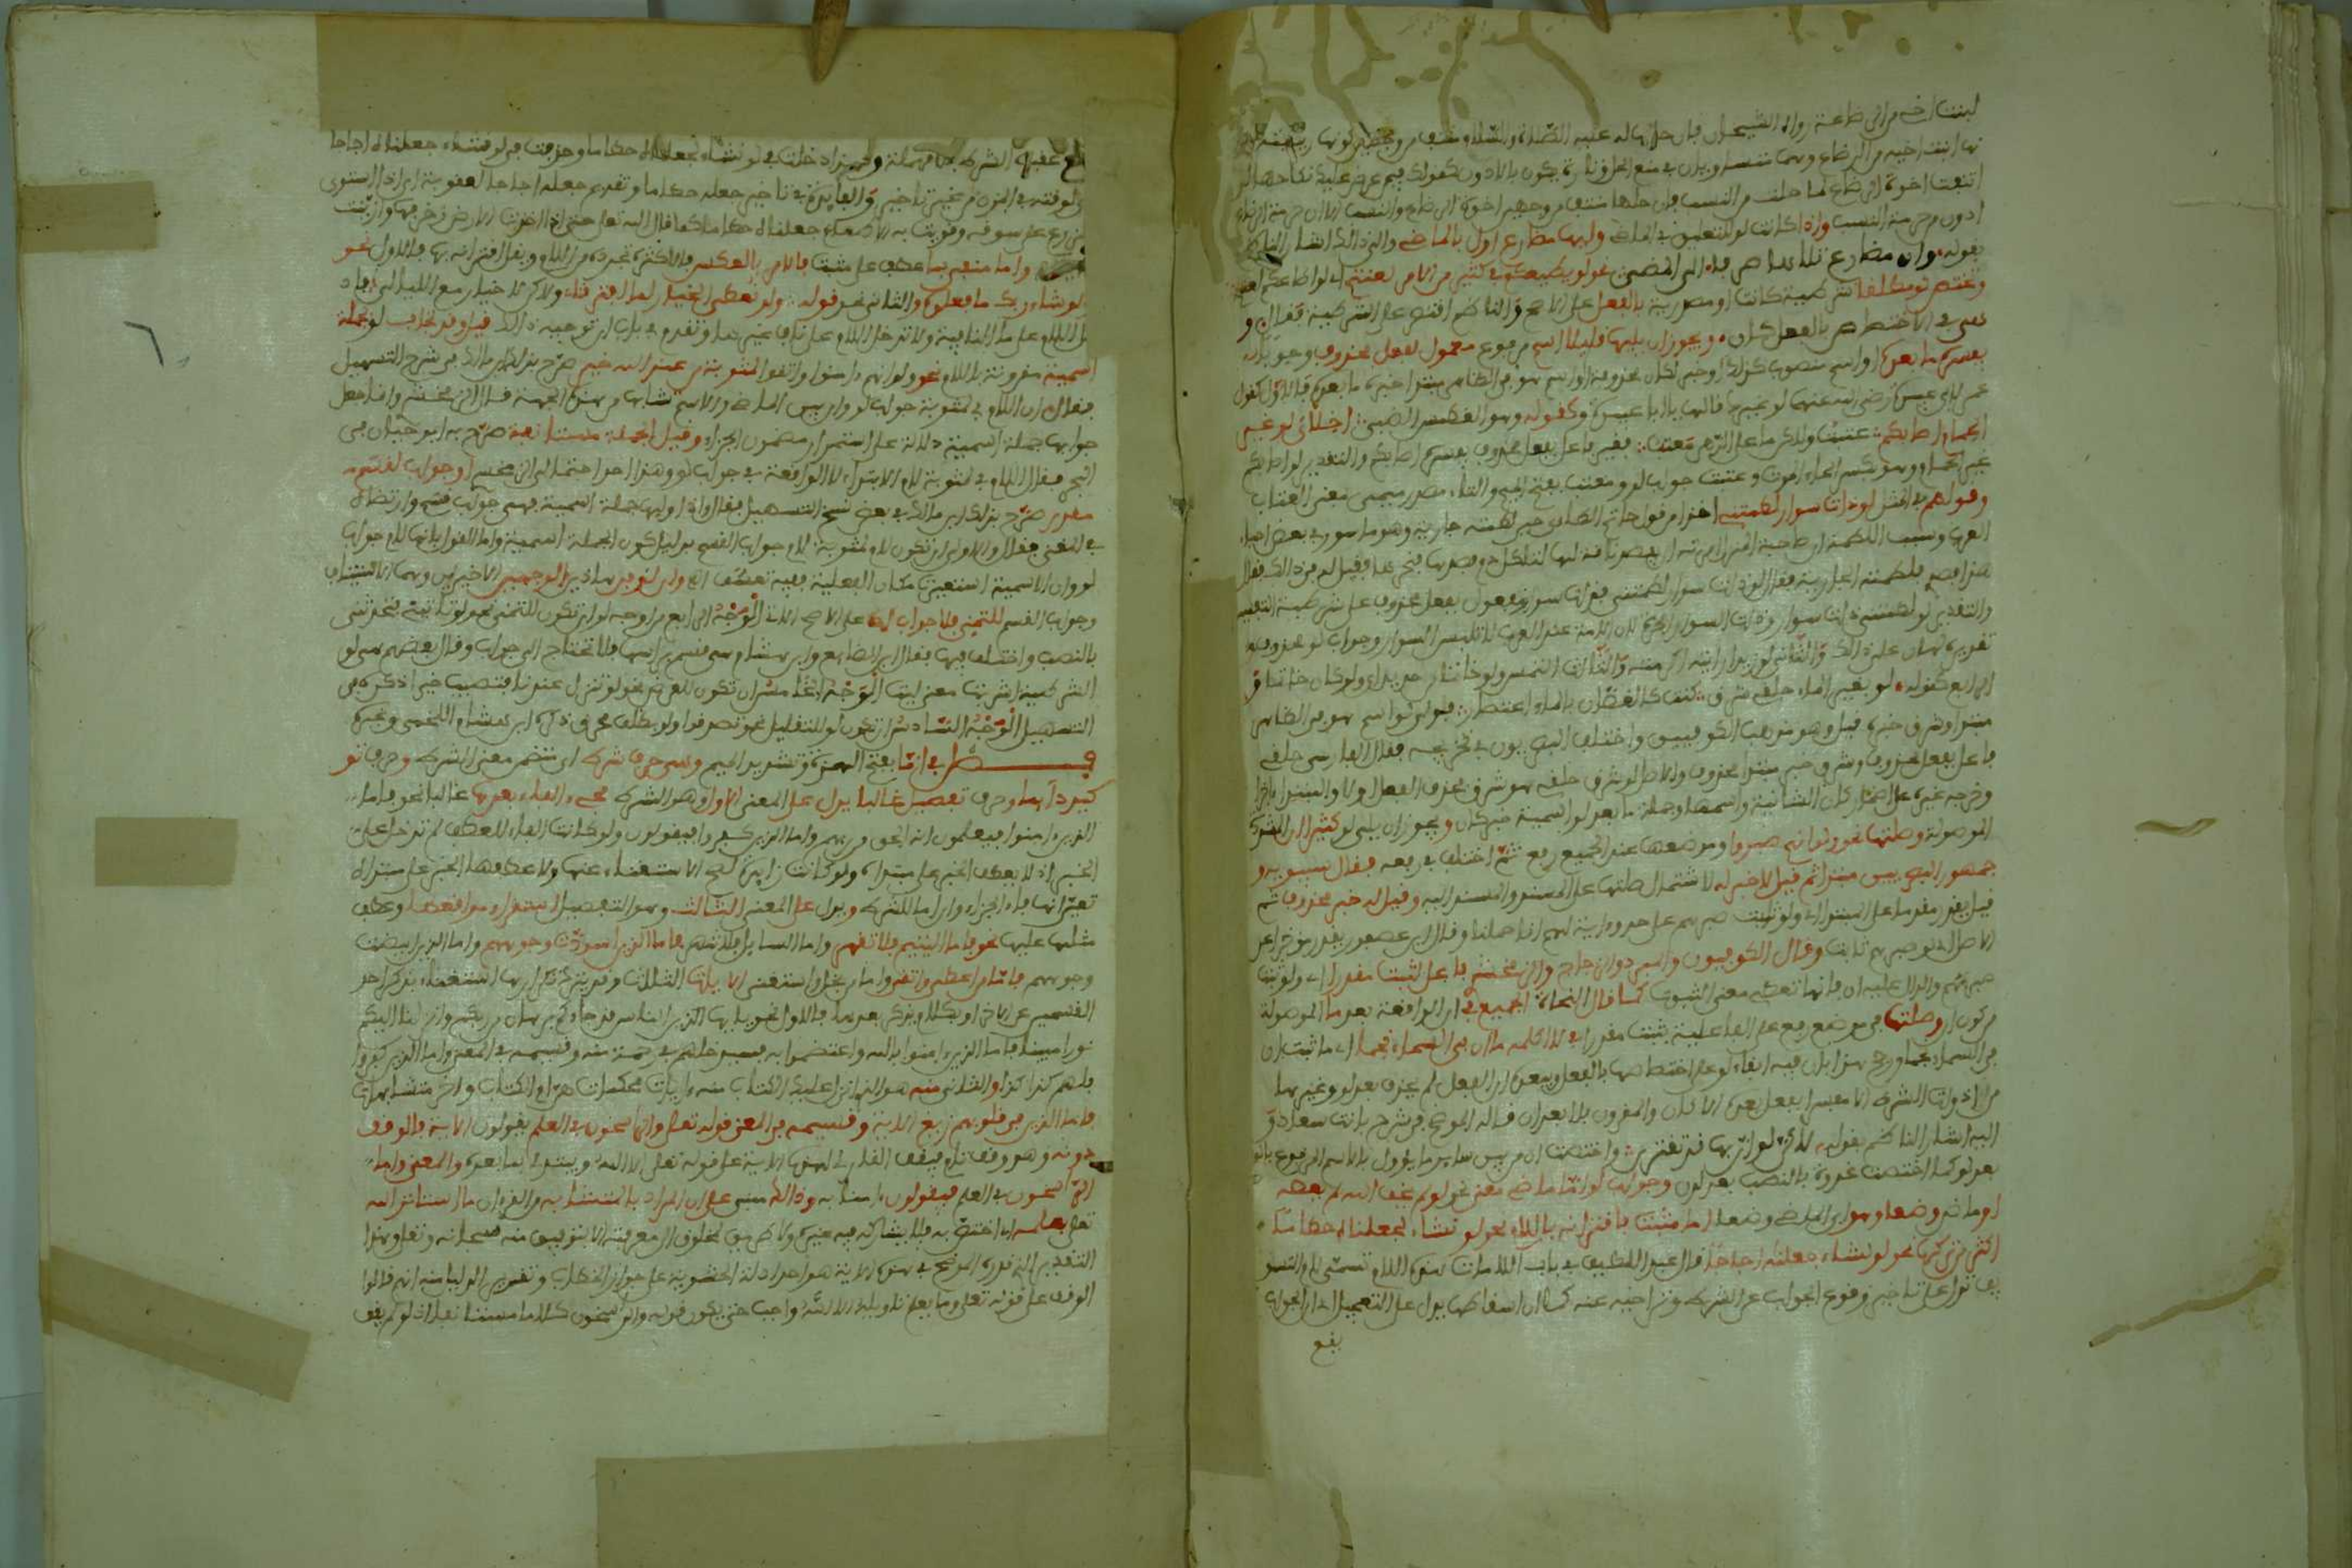 لبنت اخي من الرضاعة رواه الشيخان فان حلها له عليه الصلاة والسلام منتف من وجهين كونها ربيبته
انها ابنت اخيه من الرضاع وهما
انتفت اخوة الرضاع لما حلت من النسب فان حلها منتف من وجهين اخوة الرضاع والنسب الا ان حرمة الرضاع
ادون من حرمة النسب واذا كانت لو للتعليق في الماضي وليها مضارع اول بالماضي والى ذلك اشار الناظم
بقوله وان مضارع تلاها صرفا الى المضي نحو لو يطيعكم في كثير من الامر لعنتم اي لو اطاعكم لعنتم
وتختص لو مطلقا شرطية كانت او مصدرية بالفعل على الاصح والناظم اقتصر على الشرطية فقال و
هي في الاختصاص بالفعل كان ويجوز ان يليها قليلا اسم مرفوع معمول لفعل محذوف وجوبا
يفسره ما بعده او اسم منصوب كذلك او خبر لكان محذوفة او اسم هو في الظاهر مبتدا خبره ما بعده فالاول كقول
عمر لابي عبيدة رضي الله عنهما لو غيرك قالها يا ابا عبيدة وكقوله وهو الغطمش الضبي اخلاي لو غير
الحمام اصابكم عتبت ولكن ما على الدهر معتب فغير فاعل بفعل محذوف يفسره اصابكم والتقدير لو اصابكم
غير الحمام وهو بكسر الحاء الموت وعتبت جواب لو ومعتب بفتح الميم والتاء مصدر ميمي بمعنى العتاب
وقولهم في المثل لو ذات سوار لطمتني اخذا من قول حاتم الطائي حين لطمته جارية وهو ماسور في بعض احياء
العرب وسبب اللطمة ان صاحبة المنزل امرته ان يفصد ناقة لها لتاكل دم فصدها فنحرها فقيل له في ذلك فقال
هذا فصدي فلطمته الجارية فقال لو ذات سوار لطمتني فذات سوار مفعول بفعل محذوف على شرطية التفسير
والتقدير لو لطمتني ذات سوار وذات السوار الحرة لان الامة عند العرب لا تلبس السوار وجواب لو محذوف
تقديره لهان علي ذلك والثاني لو زيدا رايته اكرمته والثالث التمس ولو خاتما من حديد اي ولو كان خاتما و
الرابع كقوله لو بغير الماء حلقي شرق كنت كالغصان بالماء اعتصاري فولي لو اسم هو في الظاهر
مبتدا وشرق خبره قيل وهو مذهب الكوفيين واختلف البصريون في تخريجه فقال الفارسي حلقي
فاعل بفعل محذوف وشرق خبر مبتدا محذوف والاصل لو شرق حلقي هو شرق فحذف الفعل اولا والمبتدا ءاخرا
وخرجه غيره على اضمار كان الشانية واسمها وجملة ما بعد لو اسمية خبر كان ويجوز ان يلي لو كثيرا ان المشددة
الموصولة وصلتها نحو ولو انهم صبروا وموضعها عند الجميع رفع ثم اختلف في رفعه فقال سيبويه و
جمهور البصريين مبتدا ثم قيل لا خبر له لاشتمال صلتها على المسند والمسند اليه وقيل له خبر محذوف ثم
قيل يقدر مقدما على المبتدا اي ولو ثبت صبرهم على حد وءاية لهم انا حملنا وقال ابن عصفور يقدر مؤخرا على
الاصل اي ولو صبرهم ثابت وقال الكوفيون والمبرد والزجاج والزمخشري فاعل لثبت مقدرا اي ولو ثبت
صبرهم والدال عليه ان فانها تعطي معنى الثبوت كما قال النحاة الجميع في ان الواقعة بعد ما الموصولة
من كون ان وصلتها في موضع رفع على الفاعلية بثبت مقدرا في لا اكلمه ما ان في السماء نجما اي ما ثبت ان
في السماء نجما ورجح هذا بان فيه ابقاء لو على اختصاصها بالفعل ويبعده ان الفعل لم يحذف بعد لو وغيرها
من ادوات الشرط الا مفسرا بفعل بعده الا كان والمقرون بلا بعد ان قاله الموضح في شرح بانت سعاد و
اليه اشار الناظم بقوله لكن لو ان بها قد تقترن واختصت ان من بين ساير ما يؤول بالاسم المرفوع بالوقوع
بعد لو كما اختصت غدوة بالنصب بعد لدن وجواب لو اما ماض معنى نحو لو لم يخف الله لم يعصه
او ماض وضعا وهو اي الماضي وضعا اما مثبت فاقترانه باللام نحو لو نشاء لجعلناه حطاما
اكثر من تركها نحو لو نشاء جعلناه اجاجا قال عبد اللطيف في باب اللامات هذه اللام تسمى لام التسو
يف تدل على تاخير وقوع الجواب عن الشرط وتراخيه عنه كما ان اسقاطها يدل على التعجيل اي ان الجواب
يقع
يقع عقيب الشرط من غير مهلة ولهذا دخلت في لو نشاء لجعلناه حطاما وحذفت في لو نشاء جعلناه اجاجا
اي لوقته في المزن من غير تاخير والفايدة في تاخير جعله حطاما وتقديم جعله اجاجا
الزرع على سوقه وقويت به الاطماع جعلناه حطاما كما قال الله تعالى حتى اذا اخذت الارض زخرفها وازينت
واما منفي بما عطف على مثبت فالامر بالعكس فالاكثر تجرده من اللام ويقل اقترانه بها فالاول نحو
ولو شاء ربك ما فعلوه والثاني نحو قوله ولو نعطى الخيار لما افترقنا ولكن لا خيار مع الليالي
اللام على ما النافية ولا تدخل اللام على ناف غيرها وتقدم في باب ان توجيه ذلك قيل وقد تجاب لو بجملة
اسمية مقرونة باللام نحو ولو انهم ءامنوا واتقوا لمثوبة من عند الله خير صرح بذلك ابن مالك في شرح التسهيل
فقال ان اللام في لمثوبة جواب لو وان بين الماضي والاسم تشابها من هذه الجهة قال الزمخشري وانما جعل
جوابها جملة اسمية دلالة على استمرار مضمون الجزاء وقيل الجملة مستانفة صرح به ابو حيان في
البحر فقال اللام في لمثوبة لام الابتداء لا الواقعة في جواب لو وهذا احد احتمالي الزمخشري او جواب لقسم
مقدر صرح بذلك ابن مالك في بعض نسخ التسهيل فقال واذا وليها جملة اسمية فهي جواب قسم وارتضاه
في المغني فقال والاولى ان تكون لام لمثوبة لام جواب القسم بدليل كون الجملة اسمية واما القول بانها لام جواب
لو وان الاسمية استعيرت مكان الفعلية ففيه تعسف اه وان لو في هذين الوجهين الاخيرين وهما الاستيناف
وجواب القسم للتمني فلا جواب لها على الاصح الوجه الرابع من اوجه لو ان تكون للتمني نحو لو تاتيني فتحدثني
بالنصب واختلف فيها فقال ابن الضايع وابن هشام هي قسم براسها لا تحتاج الى جواب وقال بعضهم هي لو
الشرطية اشربت معنى ليت الوجه الخامس ان تكون للعرض نحو لو تنزل عندنا فتصيب خيرا ذكره في
التسهيل الوجه السادس ان تكون لو للتقليل نحو تصدقوا ولو بظلف محرق ذكره ابن هشام اللخمي وغيره
فصل في اما بفتح الهمزة وتشديد الميم وهي حرف شرط اي متضمن معنى الشرط وحرف تو
كيد دايما وحرف تفصيل غالبا يدل على المعنى الاول وهو الشرط مجيء الفاء بعدها غالبا نحو فاما
الذين ءامنوا فيعلمون انه الحق من ربهم واما الذين كفروا فيقولون ولو كانت الفاء للعطف لم تدخل على
الخبر اذ لا يعطف الخبر على مبتداه ولو كانت زايدة لصح الاستغناء عنها ولا عطفها الخبر على مبتداه
تعين انها فاء الجزاء وان اما للشرط ويدل على المعنى الثالث وهو التفصيل استقراء مواقعها وعطف
مثلها عليها نحو فاما اليتيم فلا تقهر واما السايل فلا تنهر فاما الذين اسودت وجوههم واما الذين ابيضت
وجوههم فاما من اعطى واتقى واما من بخل واستغنى الايات الثلاث وقد يترك تكرارها استغناء بذكر احد
القسمين عن الاخر او بكلام يذكر بعدها فالاول نحو يا ايها الناس قد جاءكم برهان من ربكم وانزلنا اليكم
نورا مبينا فاما الذين ءامنوا بالله واعتصموا به فسيدخلهم في رحمة منه وقسيمه في المعنى واما الذين كفروا
فلهم كذا وكذا والثاني منه هو الذي انزل عليك الكتاب منه ءايات محكمات هن ام الكتاب واخر متشابهات
فاما الذين في قلوبهم زيغ الاية وقسيمه في المعنى قوله تعالى والراسخون في العلم يقولون الاية فالوقف
دونه وهو وقف تام فيقف القاري لهذه الاية على قوله تعالى الا الله ويبتدئ بما بعده والمعنى واما
الراسخون في العلم فيقولون ءامنا به وذلك مبني على ان المراد بالمتشابه من القرءان ما استاثر الله
تعالى بعلمه اي اختص به فلا يشاركه فيه غيره ولا طريق لمخلوق الى معرفته الا بتوقيف منه سبحانه وتعالى وهذا
التقدير الذي قدره الموضح في هذه الاية هو احد ادلة الحشوية على جواز الخطاب وتقرير الدليل منه انهم قالوا
الوقف على قوله تعالى وما يعلم تاويله الا الله واجب حتى يكون قوله والراسخون كلاما مستانفا اذ لو لم يقف